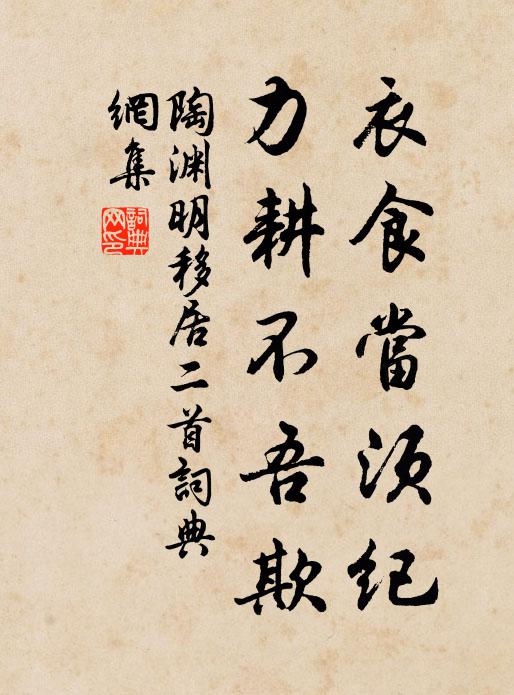 衣食當須紀
力耕不吾欺
陶渊明移居二首詞典
網集
詞典
网印